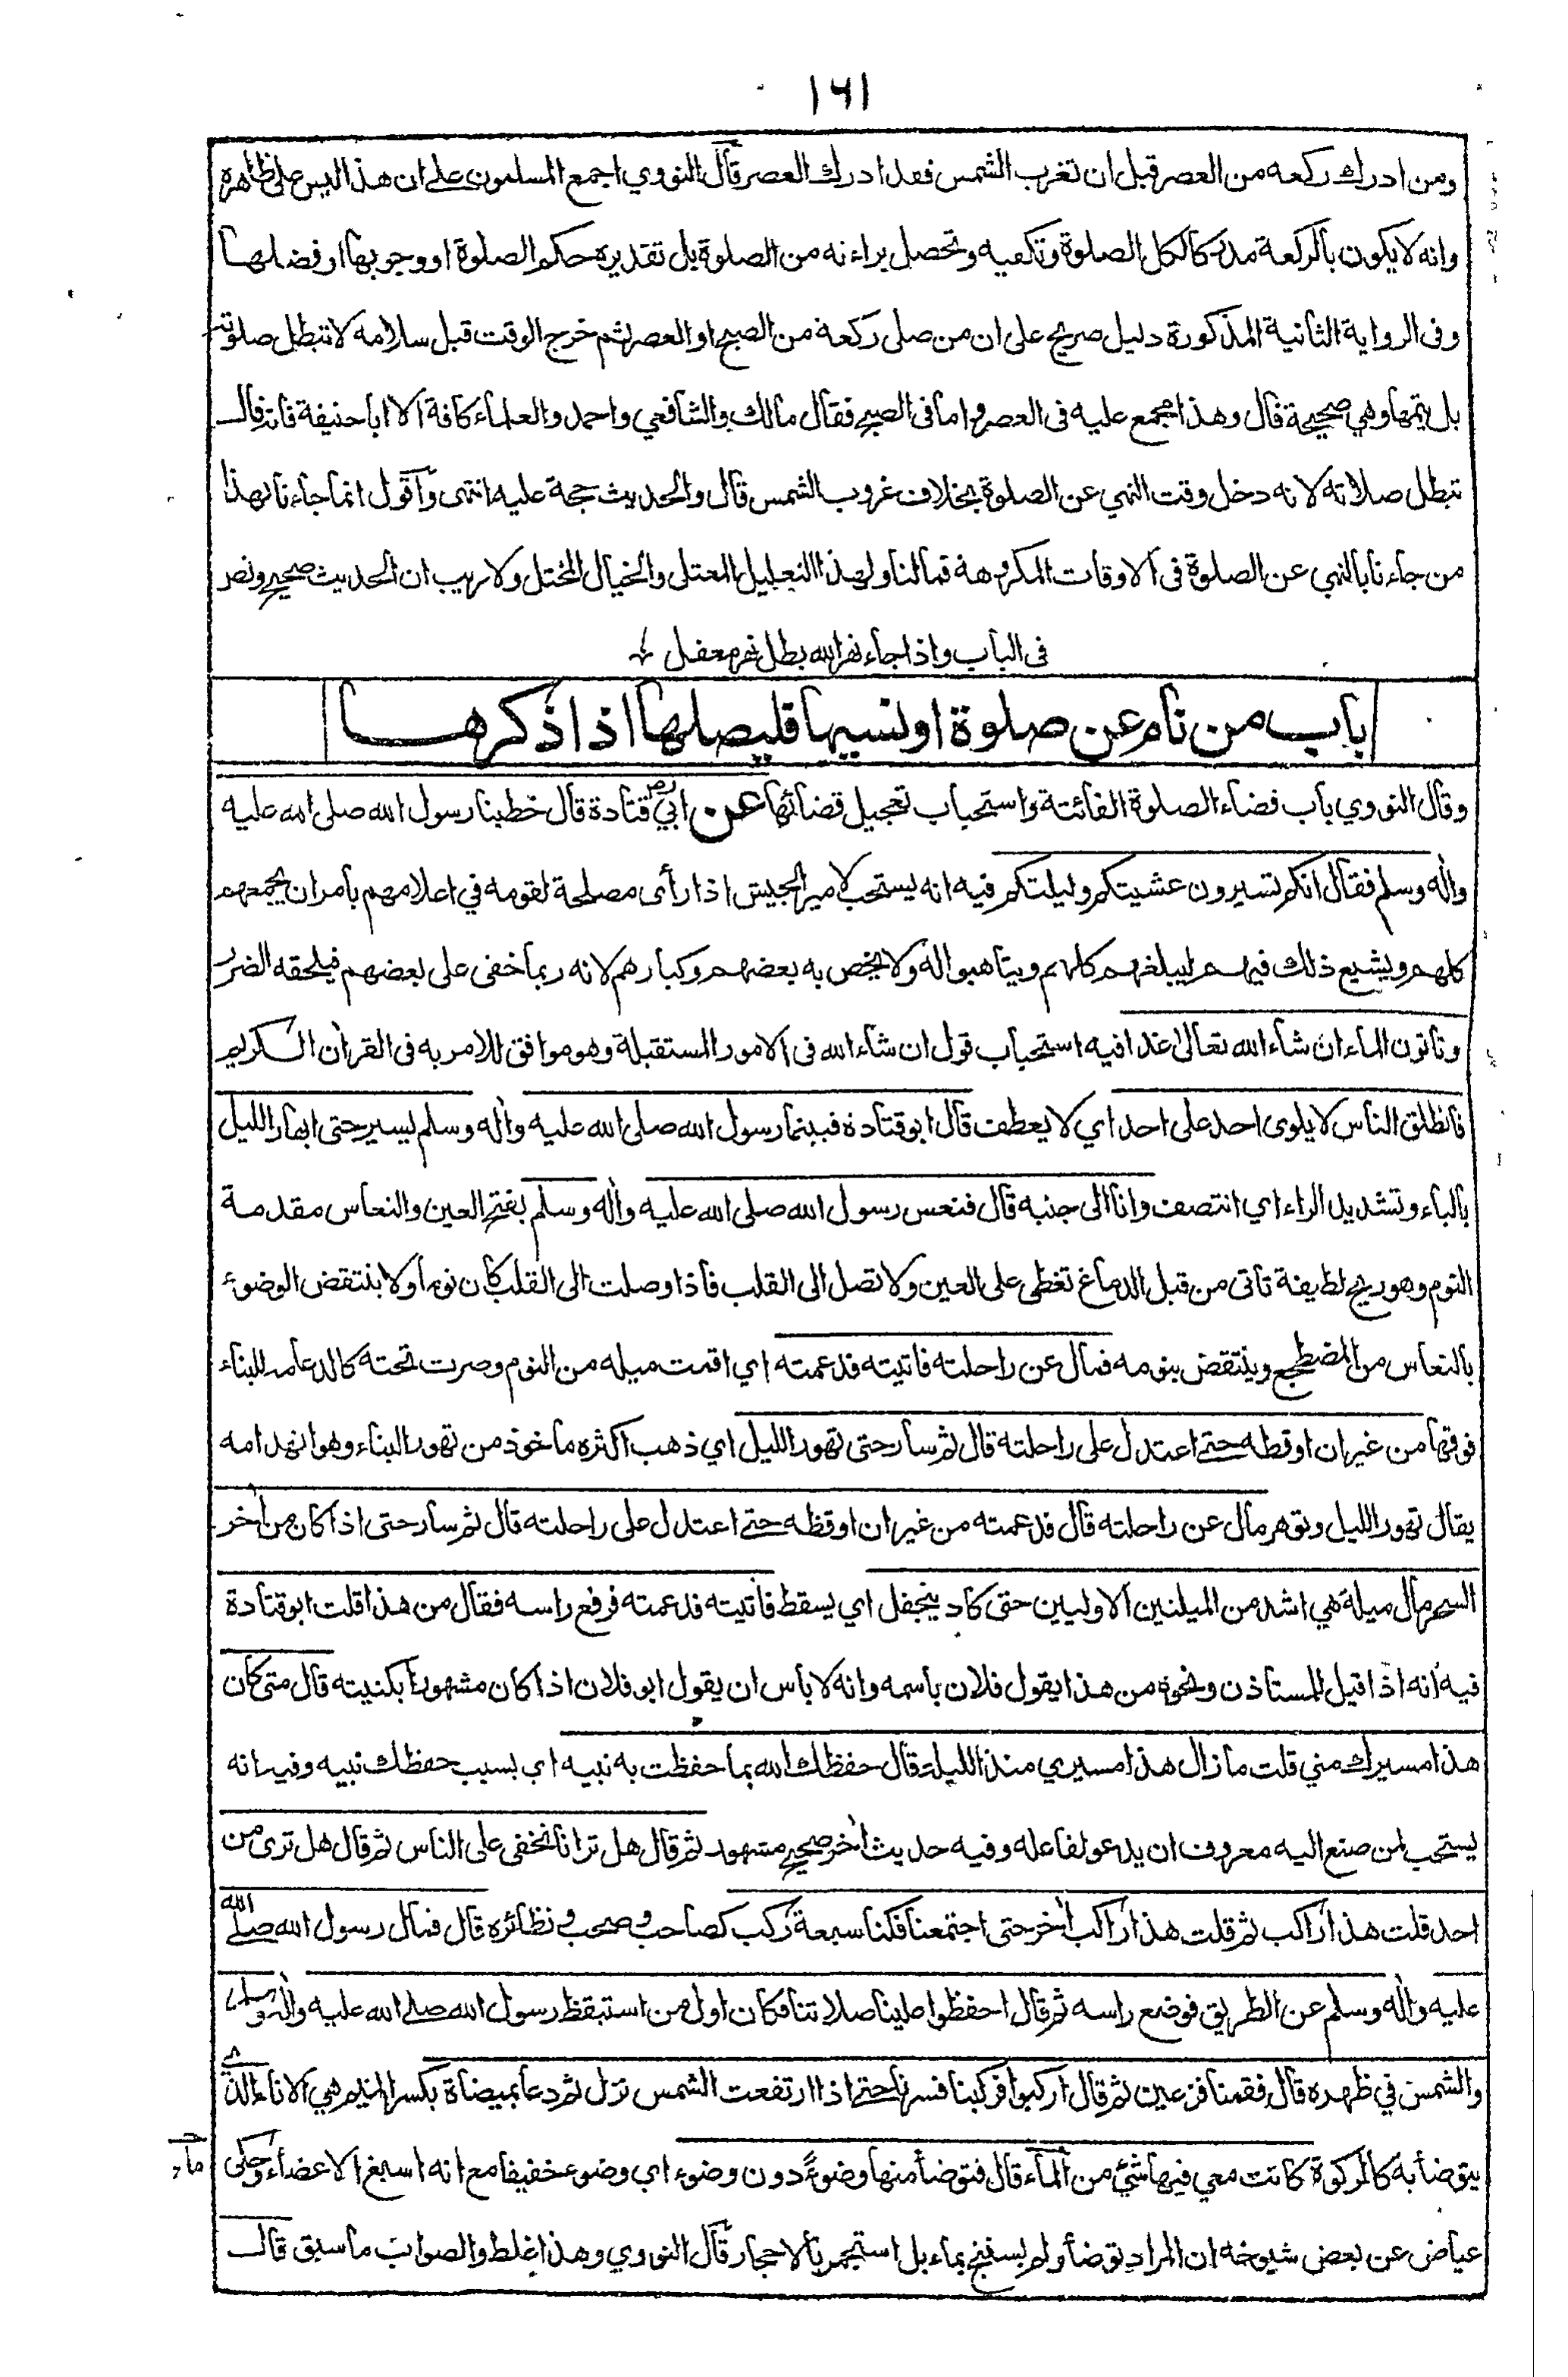 ١٦١
ومن ادرك ركعه من العصر قبل ان تغرب الشمس فقد ادرك العصر قال النووي اجمع المسلمون على ان هذا ليس على ظاهره
وانه لا يكون بالركعة مدركا لكل الصلوة وتكفيه وتحصل براءته من الصلوة بل تقديره حكم الصلوة او وجوبها او فضلها
وفى الرواية الثانية المذكورة دليل صريح على ان من صلى ركعة من الصبح او العصر ثم خرج الوقت قبل سلامه لا تبطل صلوته
بل يتمها وهي صحيحة قال وهذا مجمع عليه فى العصر واما فى الصبح فقال مالك والشافعي واحمد والعلماء كافة الا ابا حنيفة فانه قال
تبطل صلاته لانه دخل وقت النهي عن الصلوة بخلاف غروب الشمس قال والحديث حجة عليه انتهى واقول انما جاءنا بهذا
من جاءنا بالنهي عن الصلوة فى الاوقات المكروهة فمالنا ولهذا التعليل المعتل والخيال المختل ولا ريب ان الحديث صحيح ونص
فى الباب واذا جاء نهر الله بطل نهر معقل
باب من نام عن صلوة او نسيها فليصلها اذا ذكرها
وقال النووي باب قضاء الصلوة الفائتة واستحباب تعجيل قضائها عن ابي قتادة رض قال خطبنا رسول الله صلى الله عليه
واله وسلم فقال انكم تسيرون عشيتكم وليلتكم فيه انه يستحب لامير الجيش اذا رأى مصلحة لقومه في اعلامهم بأمر ان يجمعهم
كلهم ويشيع ذلك فيهم ليبلغهم كلهم ويتأهبوا له ولا يخص به بعضهم وكبارهم لانه ربما خفى على بعضهم فيلحقه الضرر
وتاتون الماء ان شاء الله تعالى غدا فيه استحباب قول ان شاء الله فى الامور المستقبلة وهو موافق للامر به فى القران الكريم
فانطلق الناس لا يلوى احد على احد اي لا يعطف قال ابو قتادة فبينما رسول الله صلى الله عليه واله وسلم يسير حتى ابهار الليل
بالباء وتشديد الراء اي انتصف وانا الى جنبه قال فنعس رسول الله صلى الله عليه واله وسلم بفتح العين والنعاس مقدمة
النوم وهو ريح لطيفة تاتى من قبل الدماغ تغطى على العين ولا تصل الى القلب فاذا وصلت الى القلب كان نوما ولا ينتقض الوضوء
بالنعاس من المضطجع وينتقض بنومه فمال عن راحلته فاتيته فدعمته اي اقمت ميله من النوم وصرت تحته كالدعامة للبناء
فوقها من غير ان اوقظه حتى اعتدل على راحلته قال ثم سار حتى تهور الليل اي ذهب اكثره ماخوذ من تهور البناء وهو انهدامه
يقال تهور الليل وتوهر مال عن راحلته قال فدعمته من غير ان اوقظه حتى اعتدل على راحلته قال ثم سار حتى اذا كان من اخر
السحر مال ميلة هي اشد من الميلتين الاوليين حتى كاد ينجفل اي يسقط فأتيته فدعمته فرفع راسه فقال من هذا قلت ابو قتادة
فيه انه اذا قيل للمستاذن ونحوه من هذا يقول فلان بأسمه وانه لا بأس ان يقول ابو فلان اذا كان مشهورا بكنيته قال متى كان
هذا مسيرك مني قلت ما زال هذا مسيري منذ الليلة قال حفظك الله بما حفظت به نبيه اي بسبب حفظك نبيه وفيه انه
يستحب لمن صنع اليه معروف ان يدعو لفاعله وفيه حديث اخر صحيح مشهور ثم قال هل ترانا نخفى على الناس ثم قال هل ترى من
احد قلت هذا راكب ثم قلت هذا راكب اخر حتى اجتمعنا فكنا سبعة ركب كصاحب وصحب ونظائره قال فمال رسول الله صلى الله
عليه واله وسلم عن الطريق فوضع راسه ثم قال احفظوا علينا صلاتنا فكان اول من استيقظ رسول الله صلى الله عليه واله وسلم
والشمس في ظهره قال فقمنا فزعين ثم قال اركبوا فركبنا فسرنا حتى اذا ارتفعت الشمس نزل ثم دعا بميضأة بكسر الميم هي الاناء الذي
يتوضأ به كالركوة كانت معي فيها شئ من الماء قال فتوضأ منها وضوءً دون وضوء اي وضوء خفيفا مع انه اسبغ الاعضاء وحكى
عياض عن بعض شيوخه ان المراد توضأ ولم يستنج بماء بل استجمر بالاحجار قال النووي وهذا غلط والصواب ما سبق قال